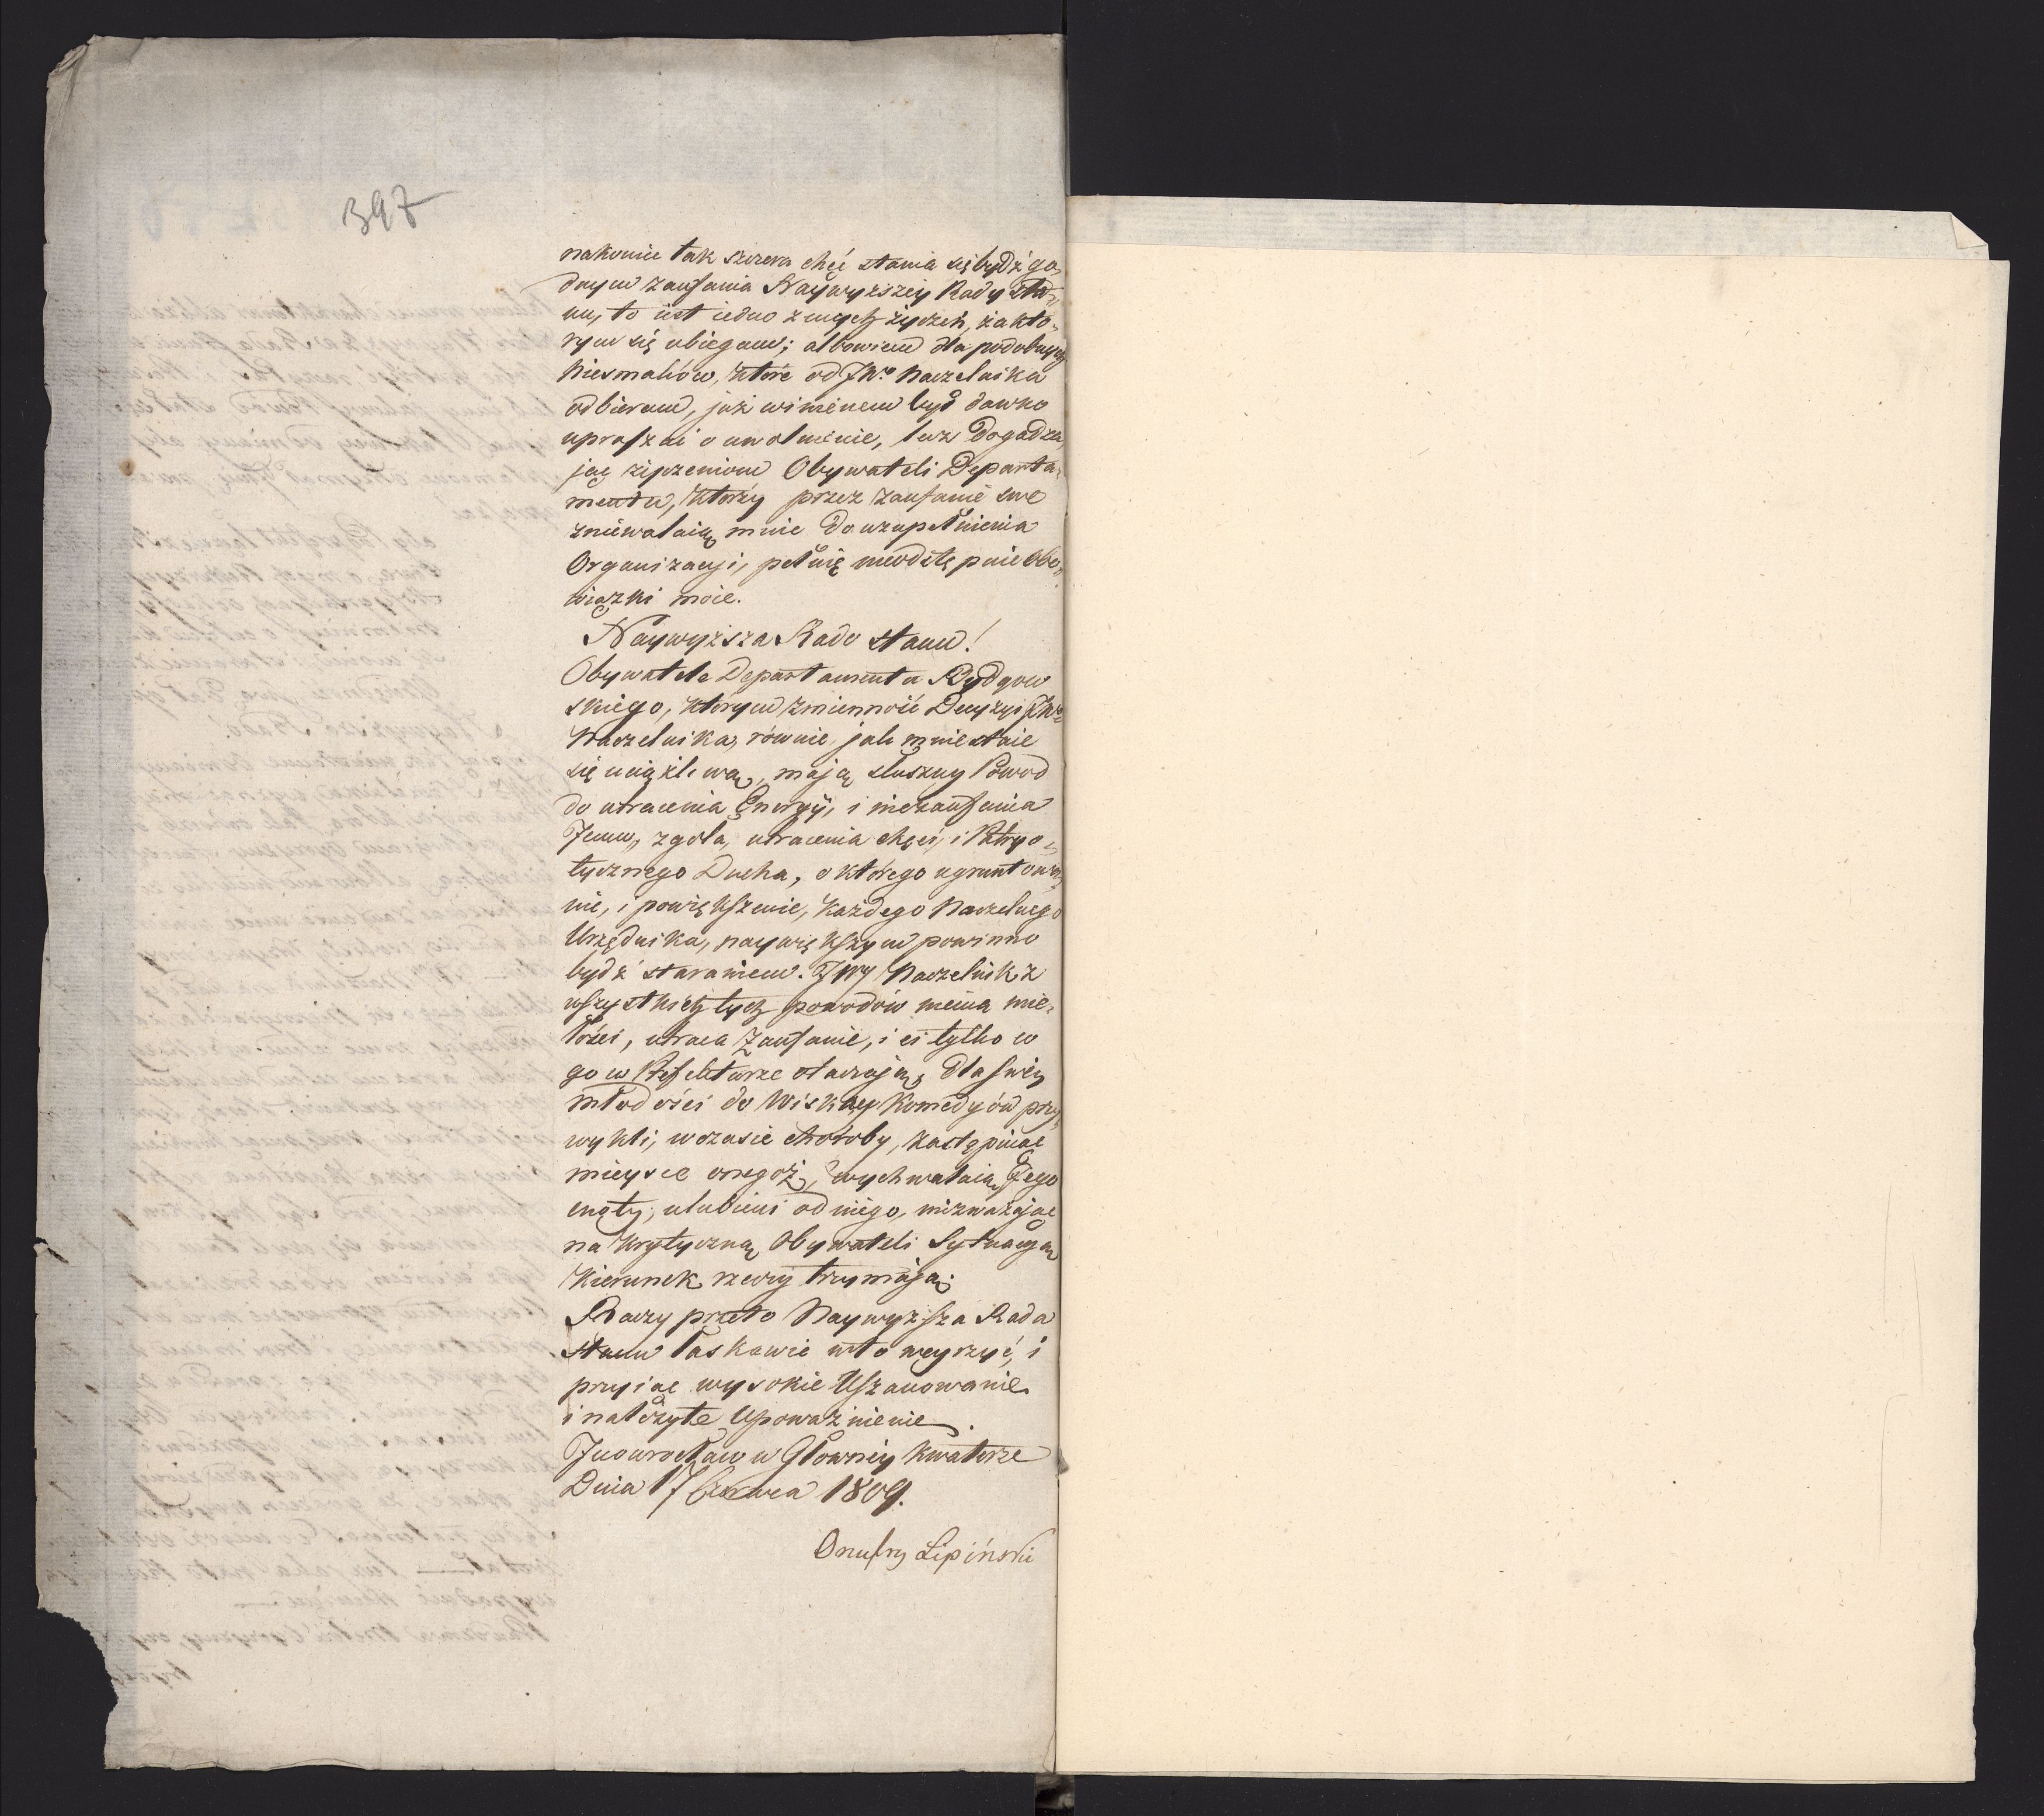 397
nakonie tak szczera chęć stania się bydź go„
dnym zaufania Naywyższey Rady Sta„
nu, to iest iedno z mych życzeń, za któ„
rym się ubiegam; albowiem dla podobnych
Niesmaków, które od JWo Naczelnika
odbieram, już winienem był dawno
upraszać o uwolnienie, lecz dogadza„
jąc życzeniom Obywateli Departa„
mentu, którzy przez zaufanie swe
zniewalaią mnie do uzupełnienia
Organizacyi, pełnię nieodstępnie Obo„
wiązki moie.
Naywyższa Rado Stanu!
Obywatele Departamentu Bydgow
skiego, którym zmienność Decyzyi JWo
Naczelnika, równie jak mnie staie
się uciążliwą, mają słuszny Powod
do utracenia Energyi, i niezaufania
Jemu, zgoła, utracenia chęci, i Patryo„
tycznego Ducha, o którego ugruntowa„
nie, i powiększenie, każdego Naczelnego
Urzędnika, naywiększym powinno
bydź staraniem. JWy Naczelnik z
wszystkich tych powodów niema mie„
łości, utraca Zaufanie, i ci tylko co
go w Prefekturze otaczają, dla swey
młodości do Wiskay Komedyów przy„
wykli, w czasie choroby, zastępuiąc
mieysce onegoż, wychwalaią Jego
cnoty, ulubieni od niego, niezważając
na krytyczną Obywateli Sytuacyą
Kierunek rzeczy trzymają.
Raczy przeto Naywyższa Rada
Stanu łaskawie w to weyrzyć, i
przyiąć wysokie Uszanowanie
i należyte Upoważnienie.
Inowrocław w Głowney Kwaterze
Dnia 17 Czerwca 1809.
Onufry Lipiński